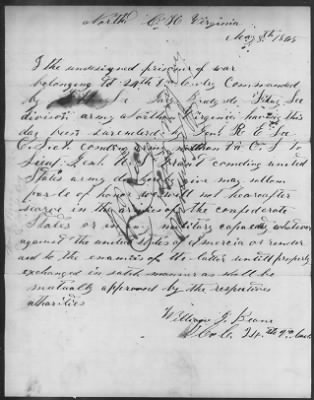 North C. H. Virginia
May 8th 1865
I the undersigned prisoner of war
belonging to 24th Va Cavly Commanded
by Gary Brigade Fitzhug Lee
division army of northern Virginia having this
day been surendered by Genl R. E. Lee
C. S. Commding army northern Va C. S. to
Lieut Genl Grant comding united
States army do hereby give my sollem
parole of honor we will not hearafter
serve in the armies of the confederate
States or in any military capacity whatever
against the united states of America or render
aid to the enamies of the latter untill properly
exchanged in such manner as shall be
mutually approved by the respective
athorities
William J. Beane
Co C. 24th Va Cav